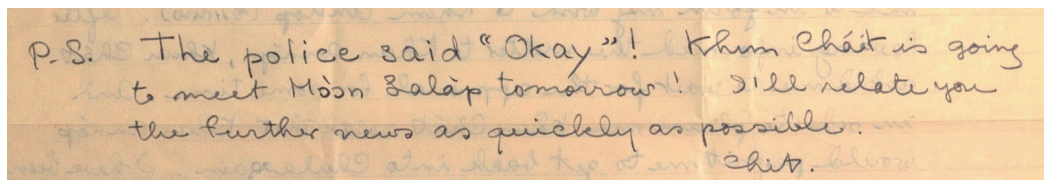 P.S. The police said "Okay"! Khun Cháit is going
to meet Mɔ̀ɔn Salàp tomorrow! I'll relate you
the further news as quickly as possible.
Chit.